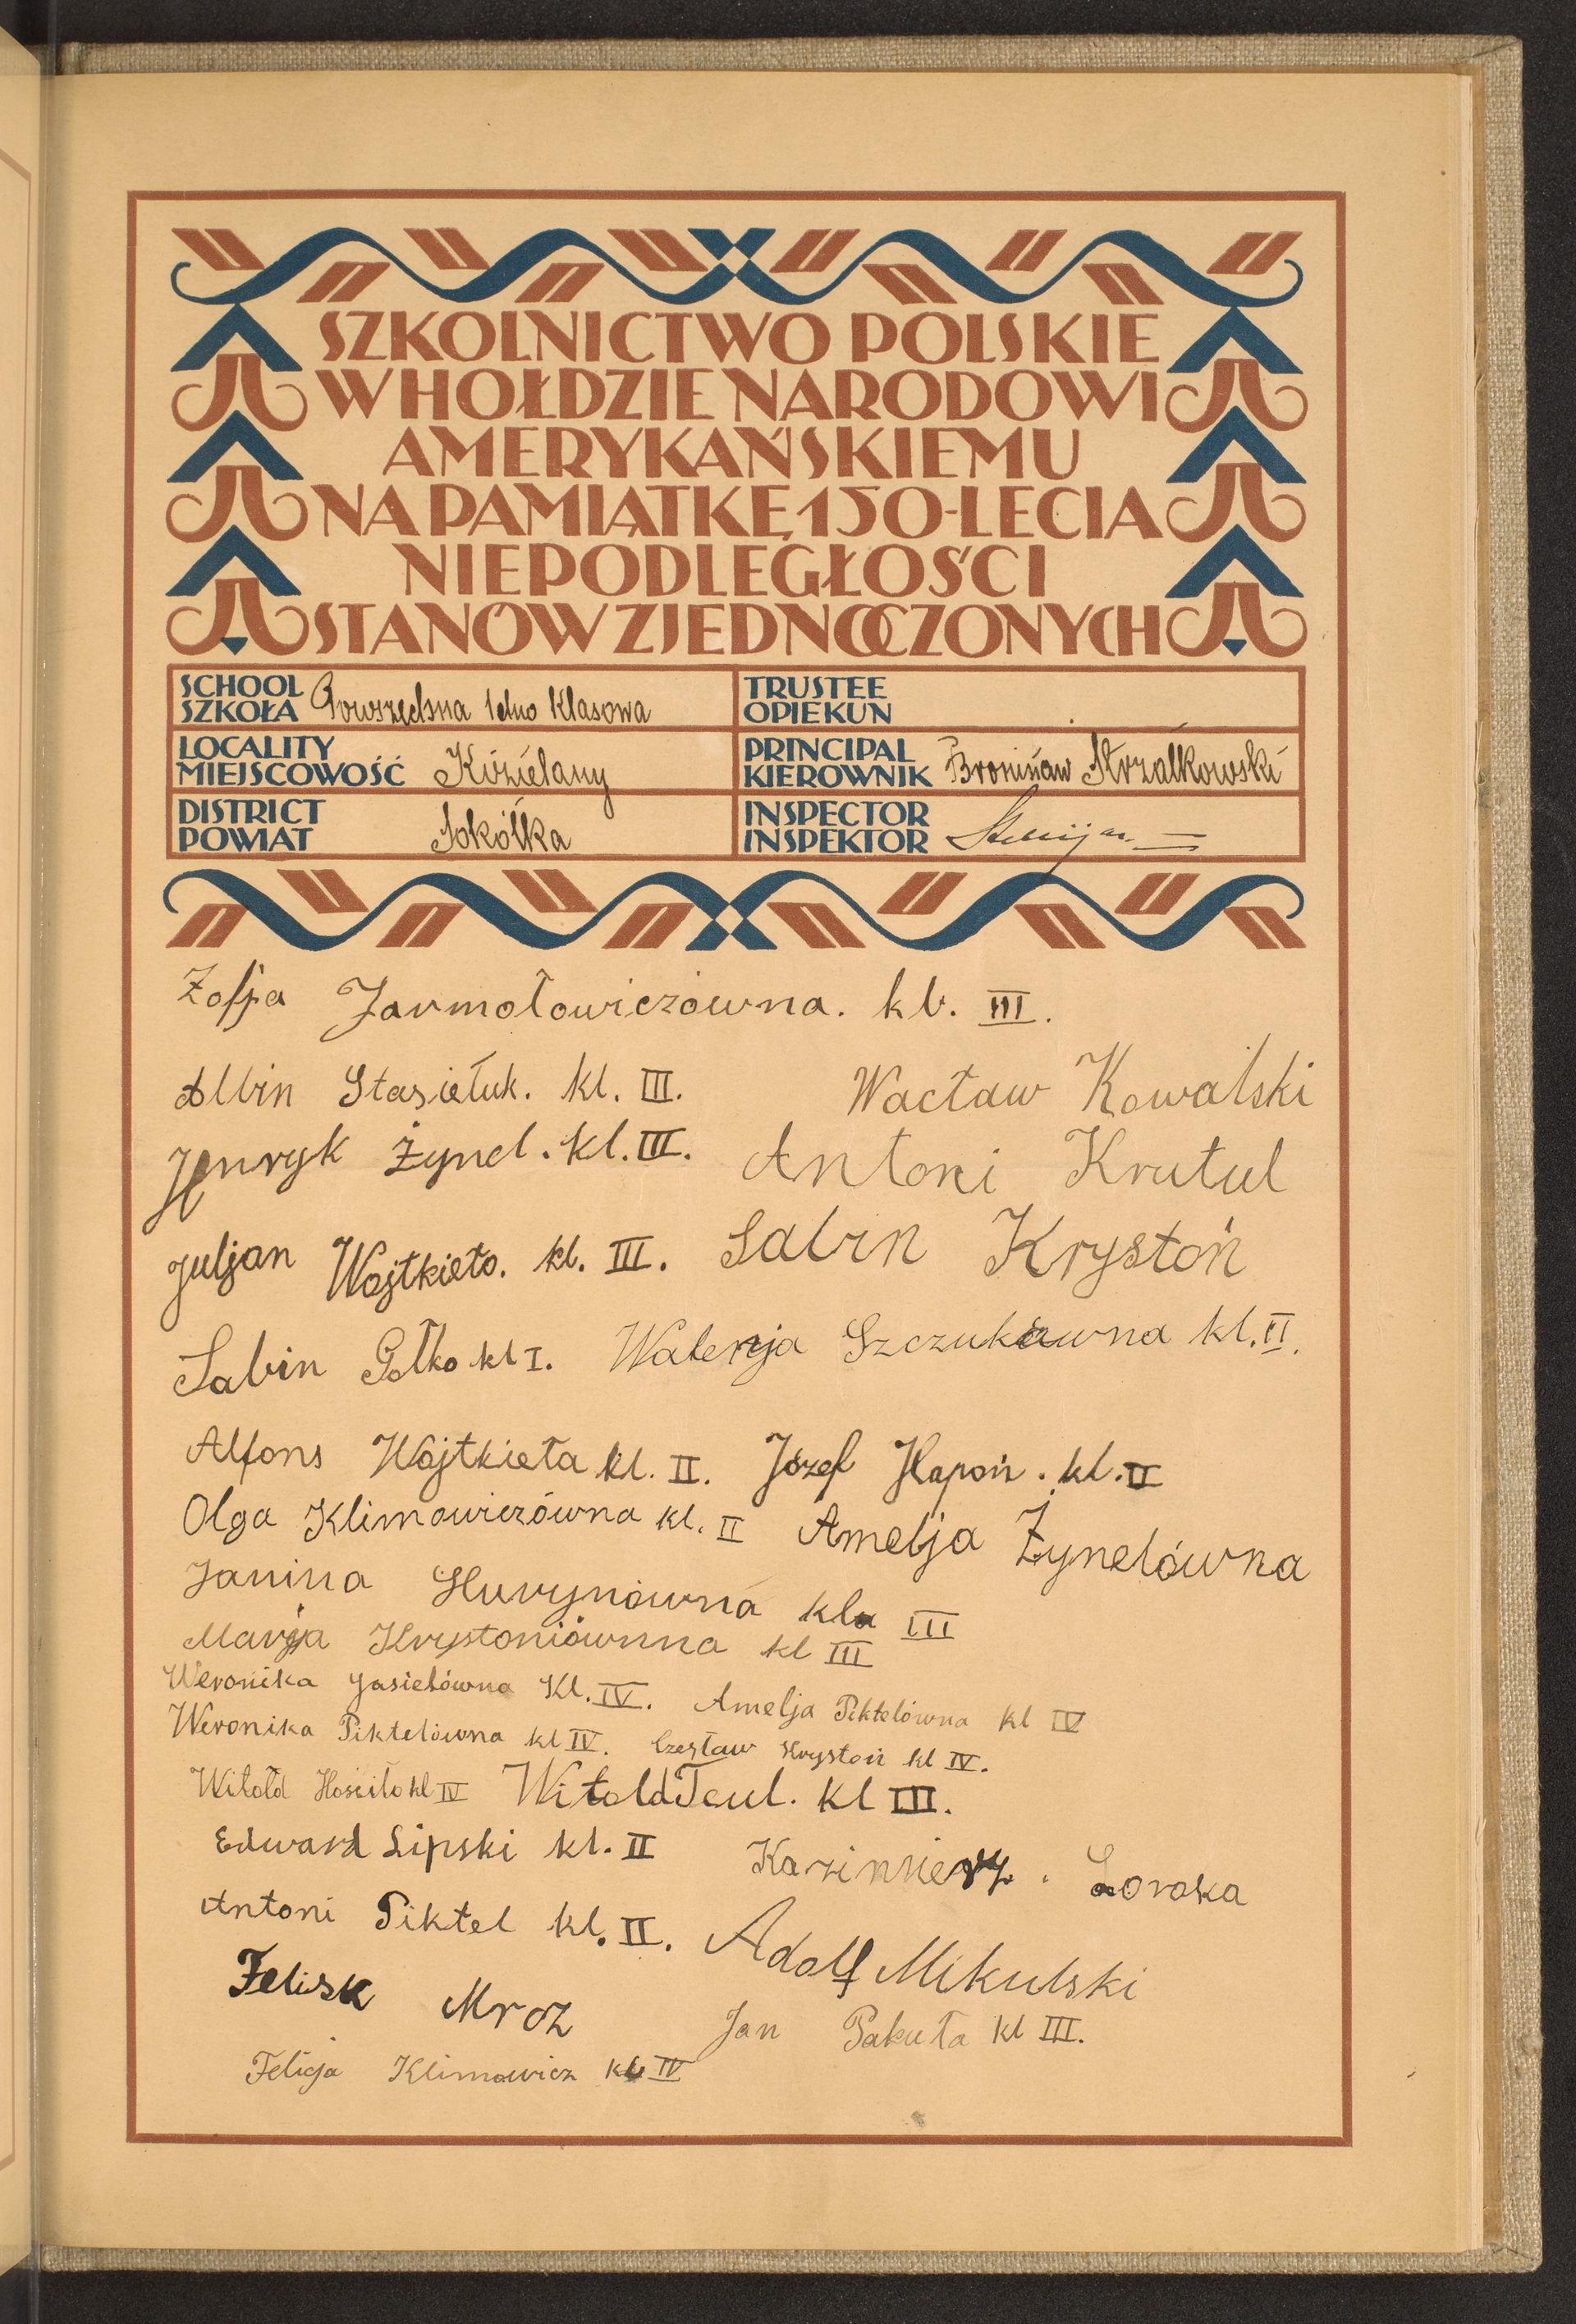 SZKOLNICTWO POLSKIE
W HOŁDZIE NARODOWI
AMERYKAŃSKIEMU
NA PAMIĄTKĘ 150-LECIA
NIEPODLEGŁOŚCI
STANÓW ZJEDNOCZONYCH
SCHOOL
SZKOŁA Powszechna 1dno Klasowa
TRUSTEE
OPIEKUN
LOCALITY
MIEJSCOWOŚĆ Kizielany
PRINCIPAL
KIEROWNIK Broniśaw Strzałkowski
DISTRICT
POWIAT Sokółka
INSPECTOR
INSPEKTOR
Zofja Jarmołowiczówna. kl. III.
Albin Stasiełuk. kl. III. Wacław Kowalski
Henryk Żynel. kl. III. Antoni Krutul
Juljan Wojtkieło. kl. III. Sabin Krystoń
Sabin Gołko kl I. Walerja Szczukówna kl. II.
Alfons Wojtkieła kl. II. Józef Hapoń. kl. II
Olga Klimowiczówna kl. II Amelja Żynelówna
Janina Hurynówna kla III
Marja Krystoniównna kl III
Weronika Jasielówna Kl. IV. Amelja Piktelówna kl IV
Weronika Piktelówna kl IV. Czesław Krystoń kl IV.
Witołd Hościło kl IV Witold Teul. kl III.
Edward Lipski kl. II Kazimierz. Soroka
Antoni Piktel kl. II. Adolf Mikulski
Felisk Mroz Jan Pakuła kl III.
Felicja Klimowicz kl IV